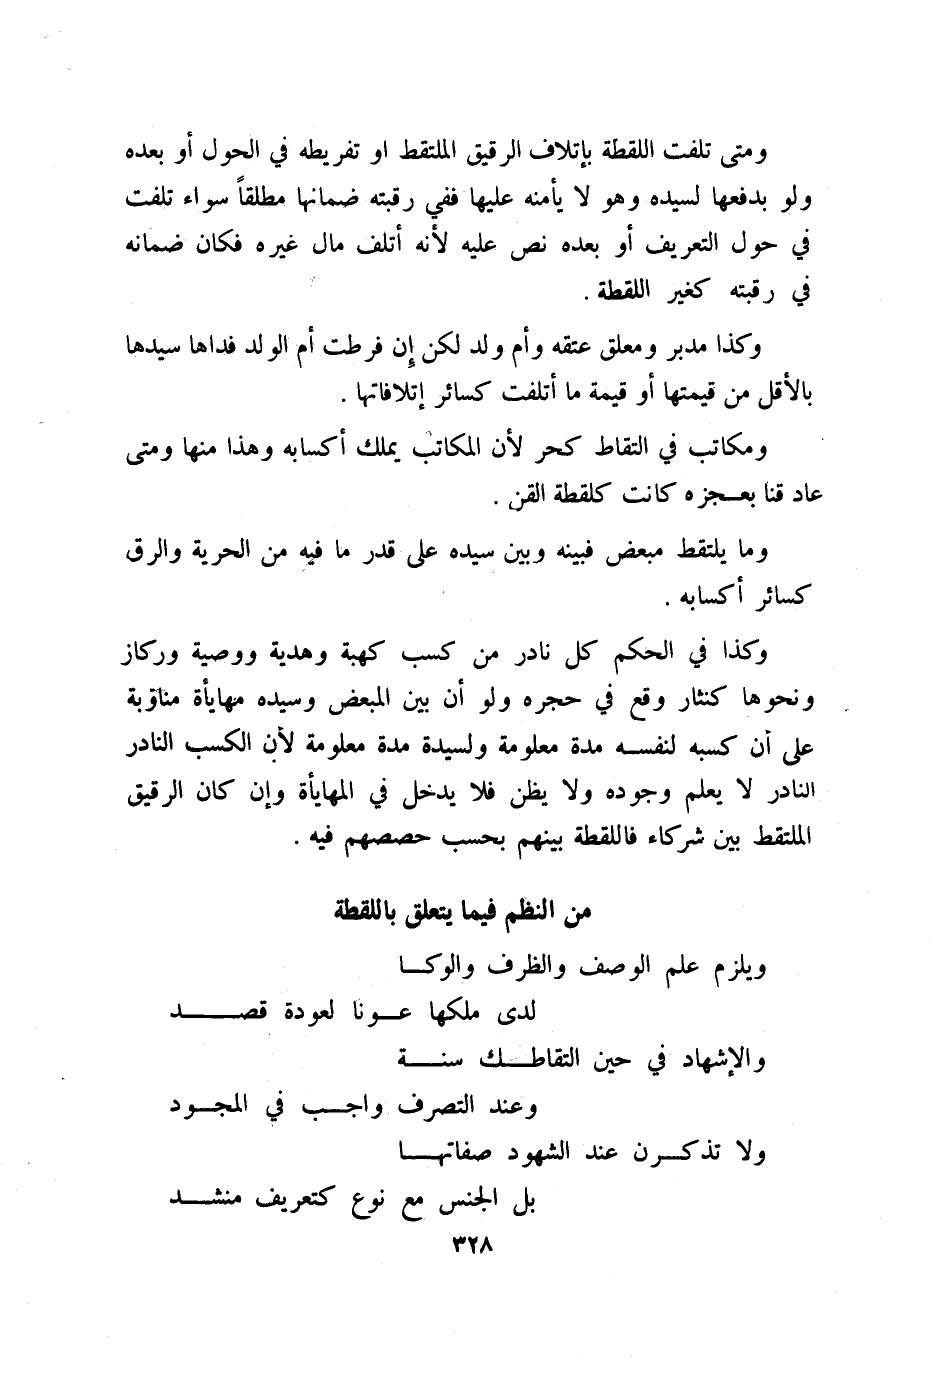 ومتى تلفت اللقطة بإتلاف الرقيق الملتقط او تفريطه في الحول أو بعده
ولو بدفعها لسيده وهو لا يأمنه عليها ففي رقبته ضمانها مطلقاً سواء تلفت
في حول التعريف أو بعده نص عليه لأنه أتلف مال غيره فكان ضمانه
في رقبته كغير اللقطة .
وكذا مدبر ومعلق عتقه وأم ولد لكن إن فرطت أم الولد فداها سيدها
بالأقل من قيمتها أو قيمة ما أتلفت كسائر إتلافاتها .
ومكاتب في التقاط كحر لأن المكاتب يملك أكسابه وهذا منها ومتى
عاد قنا بعجزه كانت كلقطة القن .
وما يلتقط مبعض فبينه وبين سيده على قدر ما فيه من الحرية والرق
كسائر أكسابه .
وكذا في الحكم كل نادر من كسب كهبة وهدية ووصية وركاز
ونحوها كنثار وقع في حجره ولو أن بين المبعض وسيده مهايأة مناوبة
على أن كسبه لنفسه مدة معلومة ولسيدة مدة معلومة لأن الكسب النادر
النادر لا يعلم وجوده ولا يظن فلا يدخل في المهايأة وإن كان الرقيق
الملتقط بين شركاء فاللقطة بينهم بحسب حصصهم فيه .
من النظم فيما يتعلق باللقطة
ويلزم علم الوصف والظرف والوكا
لدى ملكها عونا لعودة قصد
والإشهاد في حين التقاطك سنة
وعند التصرف واجب في المجود
ولا تذكرن عند الشهود صفاتها
بل الجنس مع نوع كتعريف منشد
٣٢٨